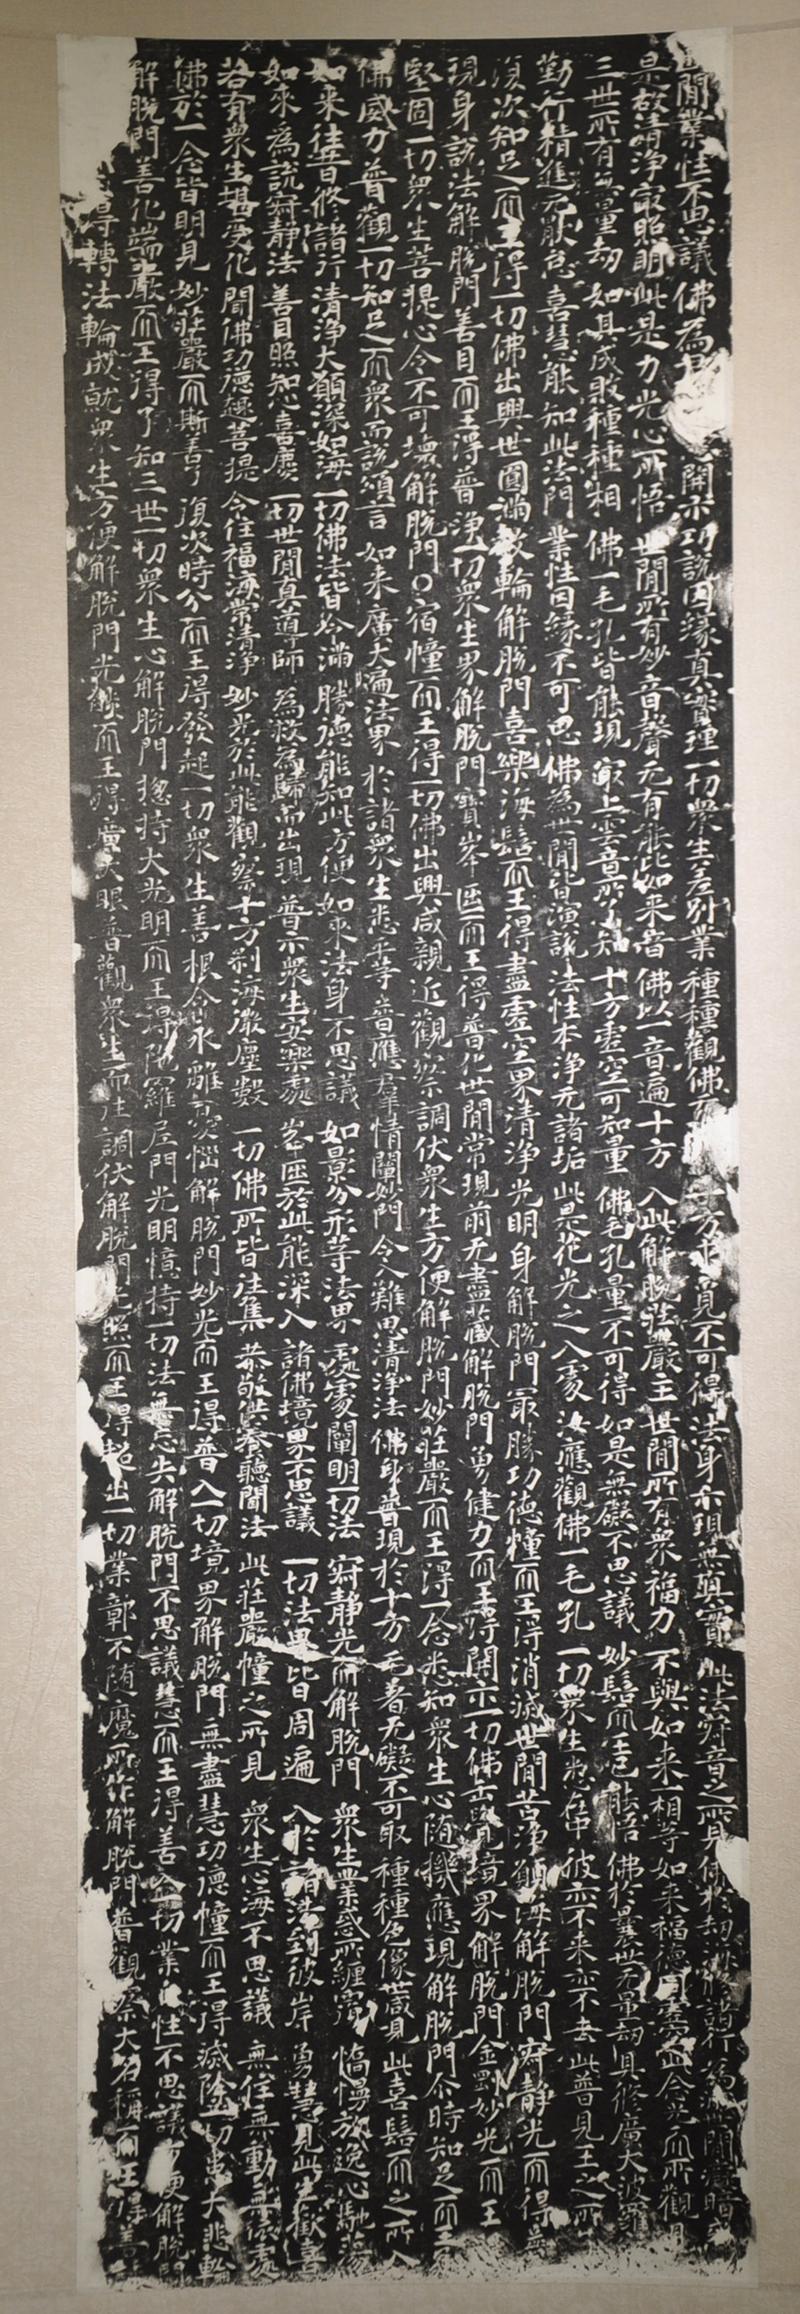 聞業性不思議 佛為 開示巧說因緣真實理 一切眾生差別業 種種觀佛 十方求覓不可得 法身示現無真實 此法寂音之所見 佛於劫海修諸行 為滅世間癡暗
是故清淨最照明 此是力光心所悟 世間所有妙音聲 无有能比如來音 佛以一音遍十方 入此解脫莊嚴主 世間所有眾福力 不與如來一相等 如來福德同虛空 此念光天所觀見
三世所有無量劫 如其成敗種種相 佛一毛孔皆能現 最上雲音所了知 十方虛空可知量 佛毛孔量不可得 如是無礙不思議 妙髻天王已能悟 佛於曩世无量劫 具修廣大波羅
勤行精進无厭怠 喜慧能知此法門 業性因緣不可思 佛為世間皆演說 法性本淨无諸垢 此是花光之入處 汝應觀佛一毛孔 一切眾生悉在中 彼亦不來亦不去 此普見王之所
復次知足天王得一切佛出興世圓滿教輪解脫門喜樂海髻天王得盡虛空界清淨光明身解脫門最勝功德幢天王得消滅世間苦淨願海解脫門寂靜光天王得普
現身說法解脫門善目天王得普淨一切眾生界解脫門寶峯匝天王得普化世間常現前无盡藏解脫門勇健力天王得開示一切佛正覺境界解脫門金剛妙光天王
堅固一切眾生菩提心令不可壞解脫門〇宿幢天王得一切佛出興咸親近觀察調伏眾生方便解脫門妙莊嚴天王得一念悉知眾生心隨機應現解脫門尒時知足天王
佛威力普觀一切知足天眾而說頌言 如來廣大遍法界 於諸眾生悉平等 普應羣情闡妙門 令入難思清淨法 佛身普現於十方 无著无礙不可取 種種色像世咸見 此喜髻天之所入
如來往昔修諸行 清淨大願深如海 一切佛法皆令滿 勝德能知此方便 如來法身不思議 如影分形等法界 處處闡明一切法 寂靜光天解脫門 眾生業惑所纏覆 憍慢放逸心馳蕩
如來為說寂靜法 善目照知心喜慶 一切世間真導師 為救為歸而出現 普示眾生安樂處 峯匝於此能深入 諸佛境界不思議 一切法界皆周遍 入於諸法到彼岸 勇慧見此生歡喜
若有眾生堪受化 聞佛功德趣菩提 令住福海常清淨 妙光於此能觀察 十方剎海微塵數 一切佛所皆往集 恭敬供養聽聞法 此莊嚴幢之所見 眾生心海不思議 無住無動無依處
佛於一念皆明見 妙莊嚴天斯善了 復次時分天王得發起一切眾生善根令永離憂惱解脫門妙光天王得普入一切境界解脫門無盡慧功德幢天王得滅除一切患大悲輪
解脫門善化端嚴天王得了知三世一切眾生心解脫門揔持大光明天王得陀羅尼門光明憶持一切法無忘失解脫門不思議慧天王得善入一切業自性不思議方便解脫門
得轉法輪成就眾生方便解脫門光焰天王得廣大眼普觀眾生而往調伏解脫門光照天王得超出一切業鄣不隨魔所作解脫門普觀察大名稱天王得善